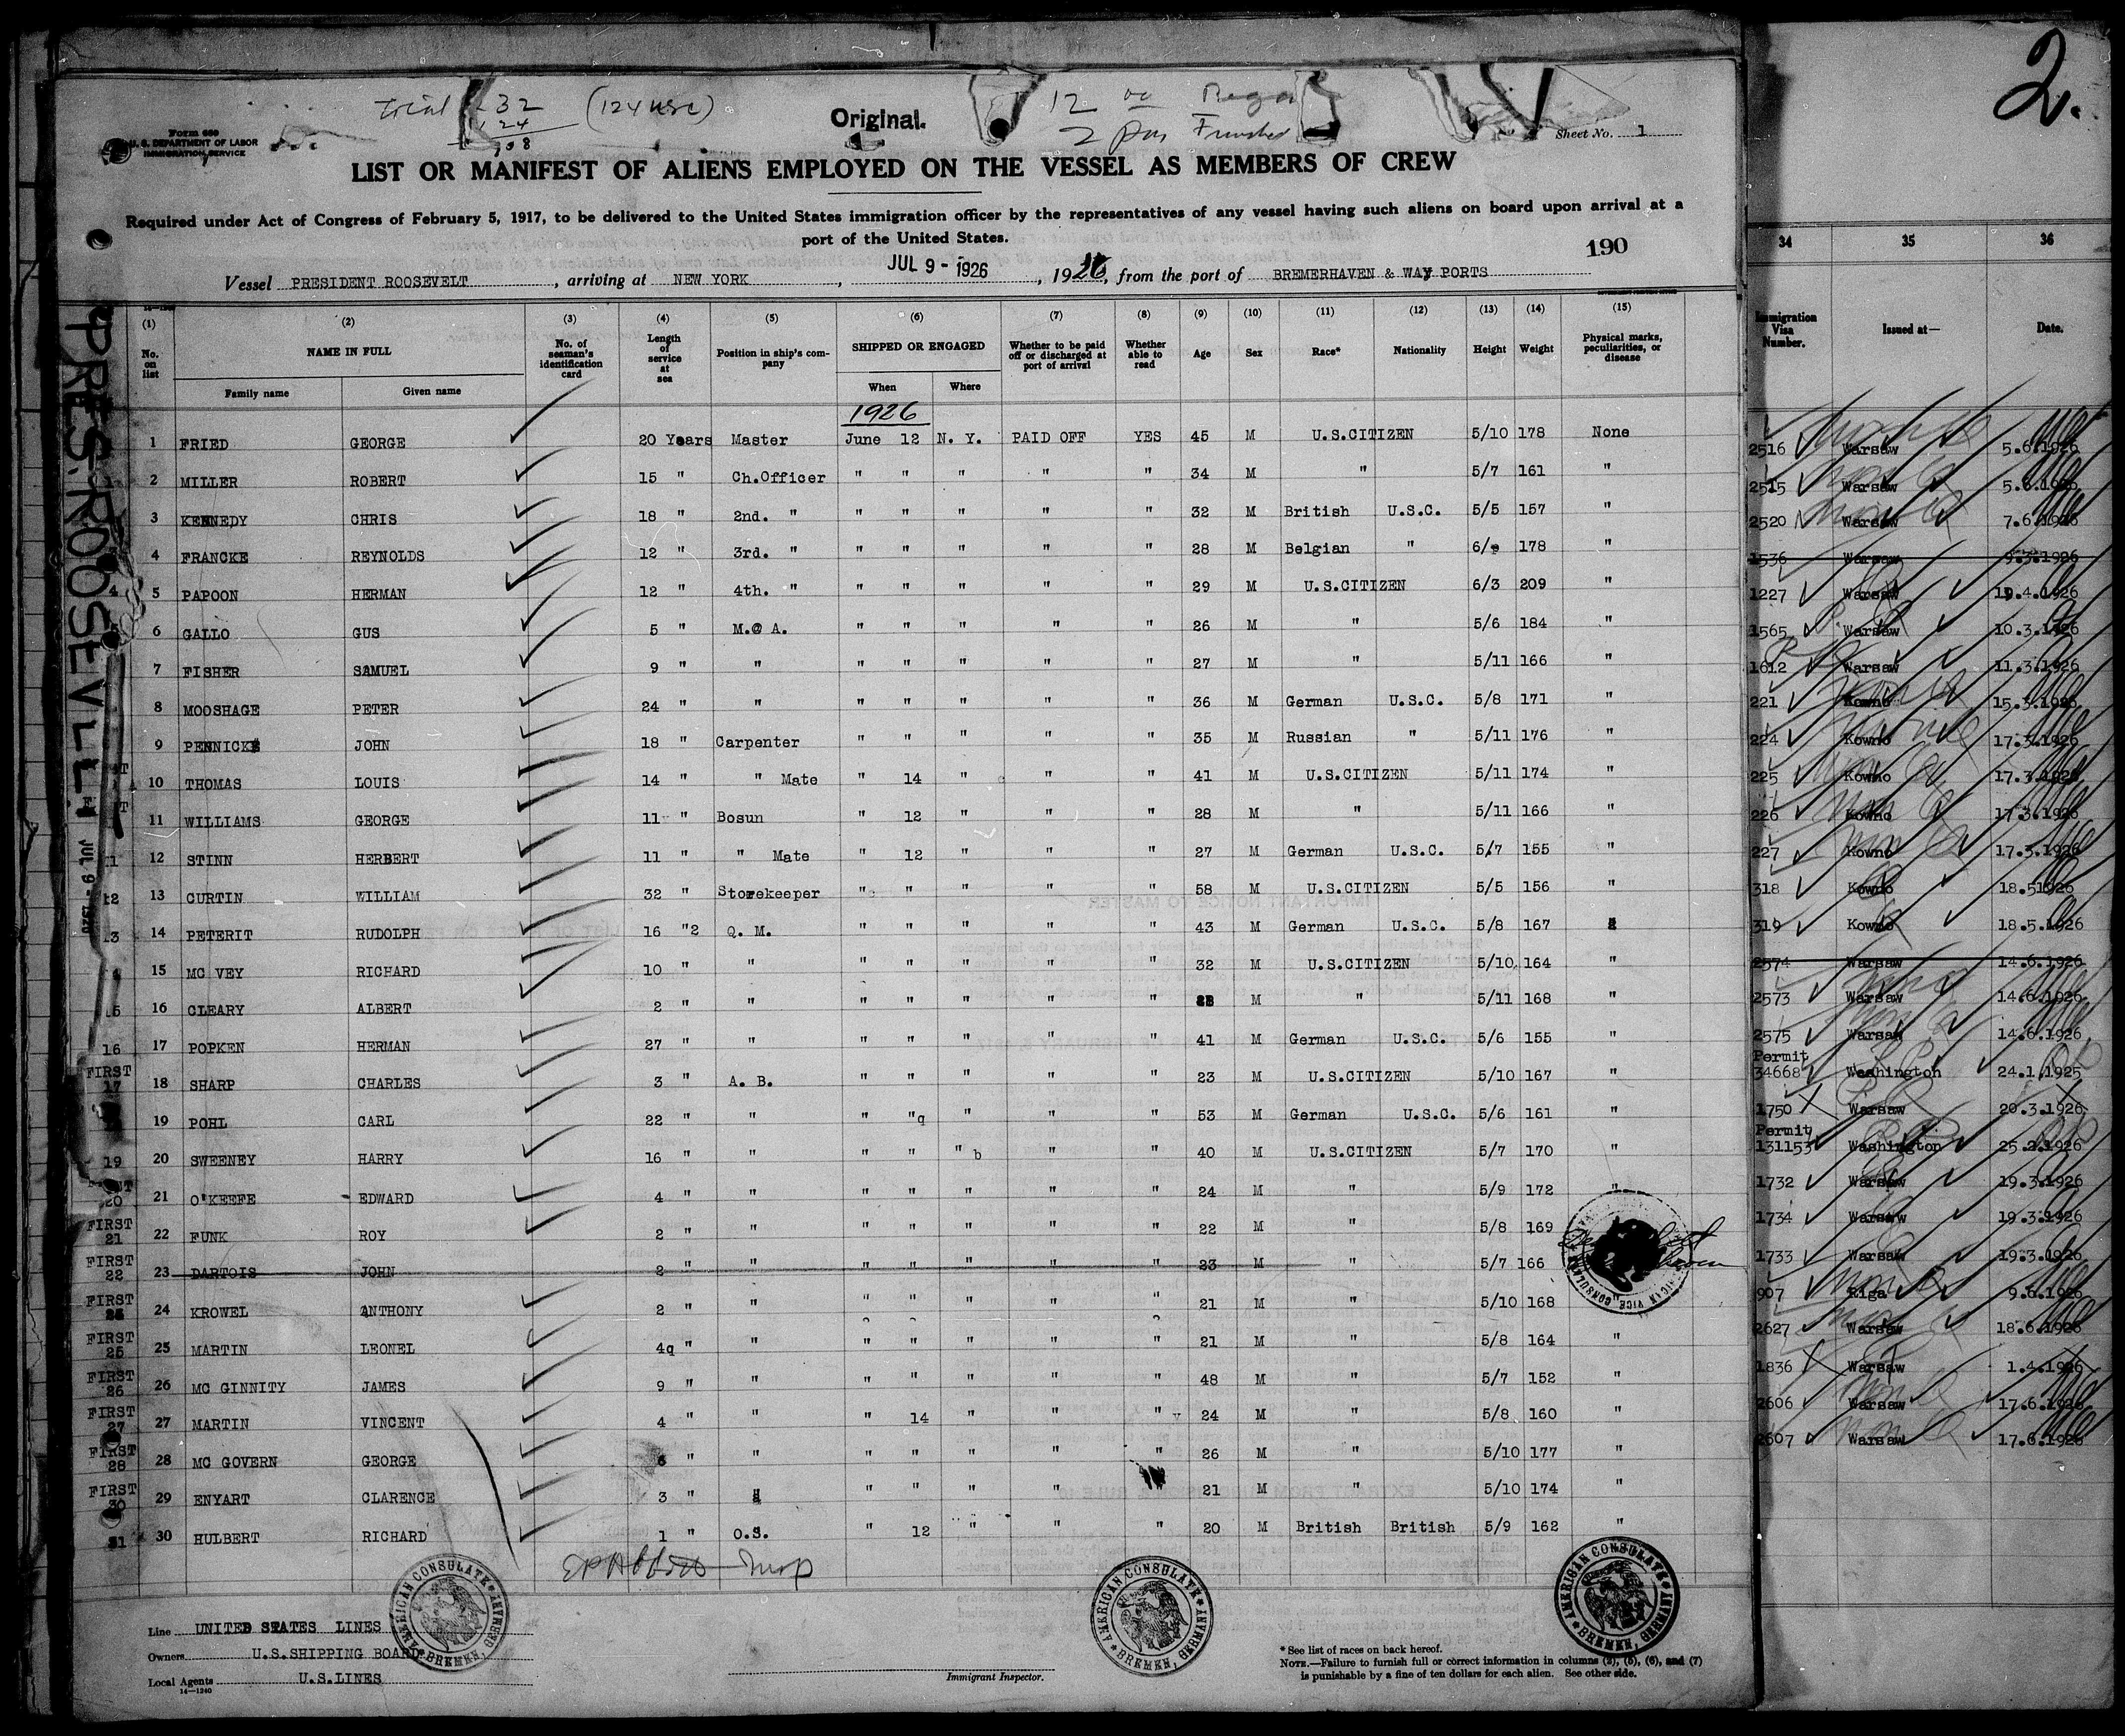 2.
Original.
(124 usc)
32
24
12
Form 680
U. S. DEPARTMENT OF LABOR
IMMIGRATION SERVICE
Sheet No. 1
LIST OR MANIFEST OF ALIENS EMPLOYED ON THE VESSEL AS MEMBERS OF CREW
Required under Act of Congress of February 5, 1917, to be delivered to the United States immigration officer by the representatives of any vessel having such aliens on board upon arrival at a
port of the United States.
190
Vessel PRESIDENT ROOSEVELT, arriving at NEW YORK, JUL 9 - 1926, 1926, from the port of BREMERHAVEN & WAY PORTS
PRES. ROOSEVELT
JUL 9 - 1926
(1) (2) (3) (4) (5) (6) (7) (8) (9) (10) (11) (12) (13) (14) (15)
No. on list | NAME IN FULL | No. of seaman's identification card | Length of service at sea | Position in ship's company | SHIPPED OR ENGAGED | Whether to be paid off or discharged at port of arrival | Whether able to read | Age | Sex | Race* | Nationality | Height | Weight | Physical marks, peculiarities, or disease
Family name | Given name | When | Where
1926
1 FRIED GEORGE 20 Years Master June 12 N. Y. PAID OFF YES 45 M U.S.CITIZEN 5/10 178 None
2 MILLER ROBERT 15 " Ch.Officer " " " " " 34 M " 5/7 161 "
3 KENNEDY CHRIS 18 " 2nd. " " " " " " 32 M British U.S.C. 5/5 157 "
4 FRANCKE REYNOLDS 12 " 3rd. " " " " " " 28 M Belgian " 6/ 178 "
5 PAPOON HERMAN 12 " 4th. " " " " " " 29 M U.S.CITIZEN 6/3 209 "
6 GALLO GUS 5 " M.@ A. " " " " " 26 M " 5/6 184 "
7 FISHER SAMUEL 9 " " " " " " " 27 M " 5/11 166 "
8 MOOSHAGE PETER 24 " " " " " " " 36 M German U.S.C. 5/8 171 "
9 PENNICK JOHN 18 " Carpenter " " " " " 35 M Russian " 5/11 176 "
10 THOMAS LOUIS 14 " " Mate " 14 " " " 41 M U.S.CITIZEN 5/11 174 "
11 WILLIAMS GEORGE 11 " Bosun " 12 " " " 28 M " 5/11 166 "
12 STINN HERBERT 11 " " Mate " 12 " " " 27 M German U.S.C. 5/7 155 "
13 CURTIN WILLIAM 32 " Storekeeper " " " " " 58 M U.S.CITIZEN 5/5 156 "
14 PETERIT RUDOLPH 16 "2 Q. M. " " " " " 43 M German U.S.C. 5/8 167
15 MC VEY RICHARD 10 " " " " " " " 32 M U.S.CITIZEN 5/10 164 "
16 CLEARY ALBERT 2 " " " " " " " M " 5/11 168 "
17 POPKEN HERMAN 27 " " " " " " " 41 M German U.S.C. 5/6 155 "
18 SHARP CHARLES 3 " A. B. " " " " " 23 M U.S.CITIZEN 5/10 167 "
19 POHL CARL 22 " " " "q " " " 53 M German U.S.C. 5/6 161 "
20 SWEENEY HARRY 16 " " " " " b " " 40 M U.S.CITIZEN 5/7 170 "
21 O'KEEFE EDWARD 4 " " " " " " " 24 M " 5/9 172 "
22 FUNK ROY 2 " " " " " " " 22 M " 5/8 169
23 DARTOIS JOHN 2 " " " " " " " 23 M " 5/7 166
24 KROWEL ANTHONY 2 " " " " " " " 21 M " 5/10 168
25 MARTIN LEONEL 4q " " " " " " " 21 M " 5/8 164 "
26 MC GINNITY JAMES 9 " " " " " " " 48 M " 5/7 152 "
27 MARTIN VINCENT 4 " " " 14 " " " 24 M " 5/8 160 "
28 MC GOVERN GEORGE 6 " " " " " " " 26 M " 5/10 177 "
29 ENYART CLARENCE 3 " " " " " " 21 M " 5/10 174 "
30 HULBERT RICHARD 1 " O.S. " 12 " " " 20 M British British 5/9 162 "
Line UNITED STATES LINES
Owners U.S.SHIPPING BOARD
Local Agents U.S.LINES
14—1240
AMERICAN CONSULATE BREMEN, GERMANY
AMERICAN CONSULATE BREMEN, GERMANY
AMERICAN CONSULATE BREMEN, GERMANY
Immigrant Inspector.
* See list of races on back hereof.
NOTE.—Failure to furnish full or correct information in columns (2), (5), (6), and (7)
is punishable by a fine of ten dollars for each alien. See other side.
34 35 36
Immigration Visa Number. Issued at— Date.
2516 Warsaw 5.6.1926
2515 Warsaw 5.6.1926
2520 Warsaw 7.6.1926
1536 Warsaw 9.3.1926
1227 Warsaw 19.4.1926
1565 Warsaw 10.3.1926
1612 Warsaw 11.3.1926
221 Kowno 15.3.1926
224 Kowno 17.3.1926
225 Kowno 17.3.1926
226 Kowno 17.3.1926
227 Kowno 17.3.1926
318 Kowno 18.51926
319 Kowno 18.5.1926
2574 Warsaw 14.6.1926
2573 Warsaw 14.6.1926
2575 Warsaw 14.6.1926
Permit
34668 Washington 24.1.1925
1750 Warsaw 20.3.1926
Permit
131153 Washington 25.2.1926
1732 Warsaw 19.3.1926
1734 Warsaw 19.3.1926
1733 Warsaw 19.3.1926
907 Riga 9.6.1926
2627 Warsaw 18.6.1926
1836 Warsaw 1.4.1926
2606 Warsaw 17.6.1926
2607 Warsaw 17.6.1926